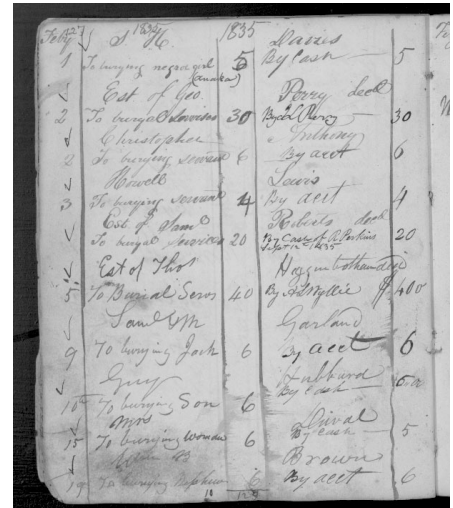 1835 1835
S H Davis
1 To burying negro girl 5 By Cash 5
Est of Geo Perry decd
2 To burial Services 30 30
Christopher Anthony
2 To burying servant 6 By acct 6
Howell Lewis
3 To burying servant 4 By acct 4
Est of Saml Roberts decd
To burial Services 20 By Cash of Perkins 20
Sept 12 1835
Est of Thos Higginbotham
5 To Burial Servs 40 By Wyllie 40
Saml M Garland
9 To burying Jack 6 By acct 6
Guy Hubbard
10 To burying Son 6 By Cash
Mrs Duval
15 To burying woman 6 By Cash 5
Brown
19 To burying Nephew 6 By acct 6
10